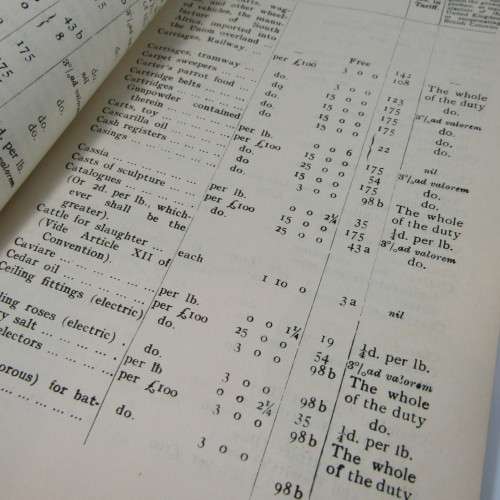 43 b
8
175
175
175
d. per lb.
do.
wag-
and other wheel-
ed vehicles, the manu-
facture of South
Africa imported into
the Union overland
Free
Carriages, Railway ...
Carriages, tramway ... per £100 3 0 0 142 The whole
Carpet sweepers ... do. 108 of the duty
Carter's parrot food ... do. 15 0 0 123 3% ad valorem
Cartridge belts ... do. 15 0 0 175 do.
Cartridges ... do. 15 0 0 175 do.
Gunpowder contained
therein ... per lb. 0 0 6 22
Carts, toy ... do 15 0 0 175 nil
Cascarilla oil ... do 25 0 0 54 3% ad valorem
Cash registers ... do. 175 do.
Casings ... 98 b The whole
of the duty
Cassia ... per lb. 0 0 2¼ 35 ¼d. per lb.
Casts of sculpture ... per £100 15 0 0 175 3% ad valorem
Catalogues ... do. 25 0 0 43 a do.
(Or 2d. per lb., which-
ever shall be the
greater).
Cattle for slaughter ... each 1 10 0 3 a nil
(Vide Article XII of
Convention).
Caviare ... per lb. 0 0 1¼ 19 ¼d. per lb.
Cedar oil ... per £100 25 0 0 54 3% ad valorem
Ceiling fittings (electric) do. 3 0 0 98 b The whole
of the duty
ling roses (electric) . do. 3 0 0 98 b do.
ry salt ... per lb 0 0 2¼ 35 ¼d. per lb.
electors ... per £100 3 0 0 98 b The whole
of the duty
orous) for bat-
... do. 3 0 0 98 b
in
Tariff